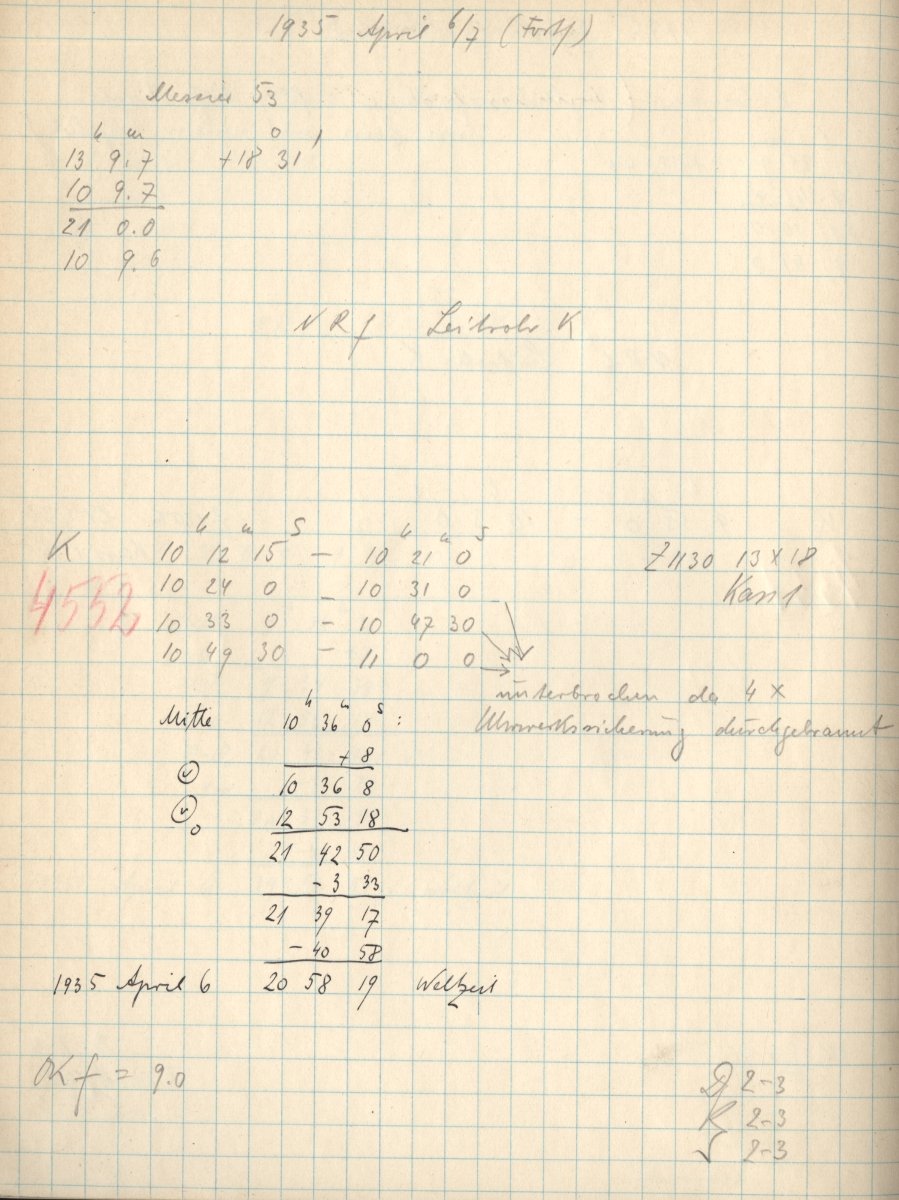 1935 April 6/7 (Forts.)
Messier 53
h m o '
13 9.7 +18 31
10 9.7
21 0.0
10 9.6
NRf Leitrohr K
h m s h m s
K 10 12 15 – 10 21 0 Z 1130 13 × 18
4552 10 24 0 – 10 31 0 Kass 1
10 33 0 – 10 47 30
10 49 30 – 11 0 0
unterbrochen da 4 ×
Uhrwerksicherung durchgebrannt
h m s
Mitte 10 36 0 :
+ 8
10 36 8
12 53 18
21 42 50
– 3 33
21 39 17
– 40 58
1935 April 6 20 58 19 Weltzeit
OKf = 9.0
2–3
K 2–3
2–3